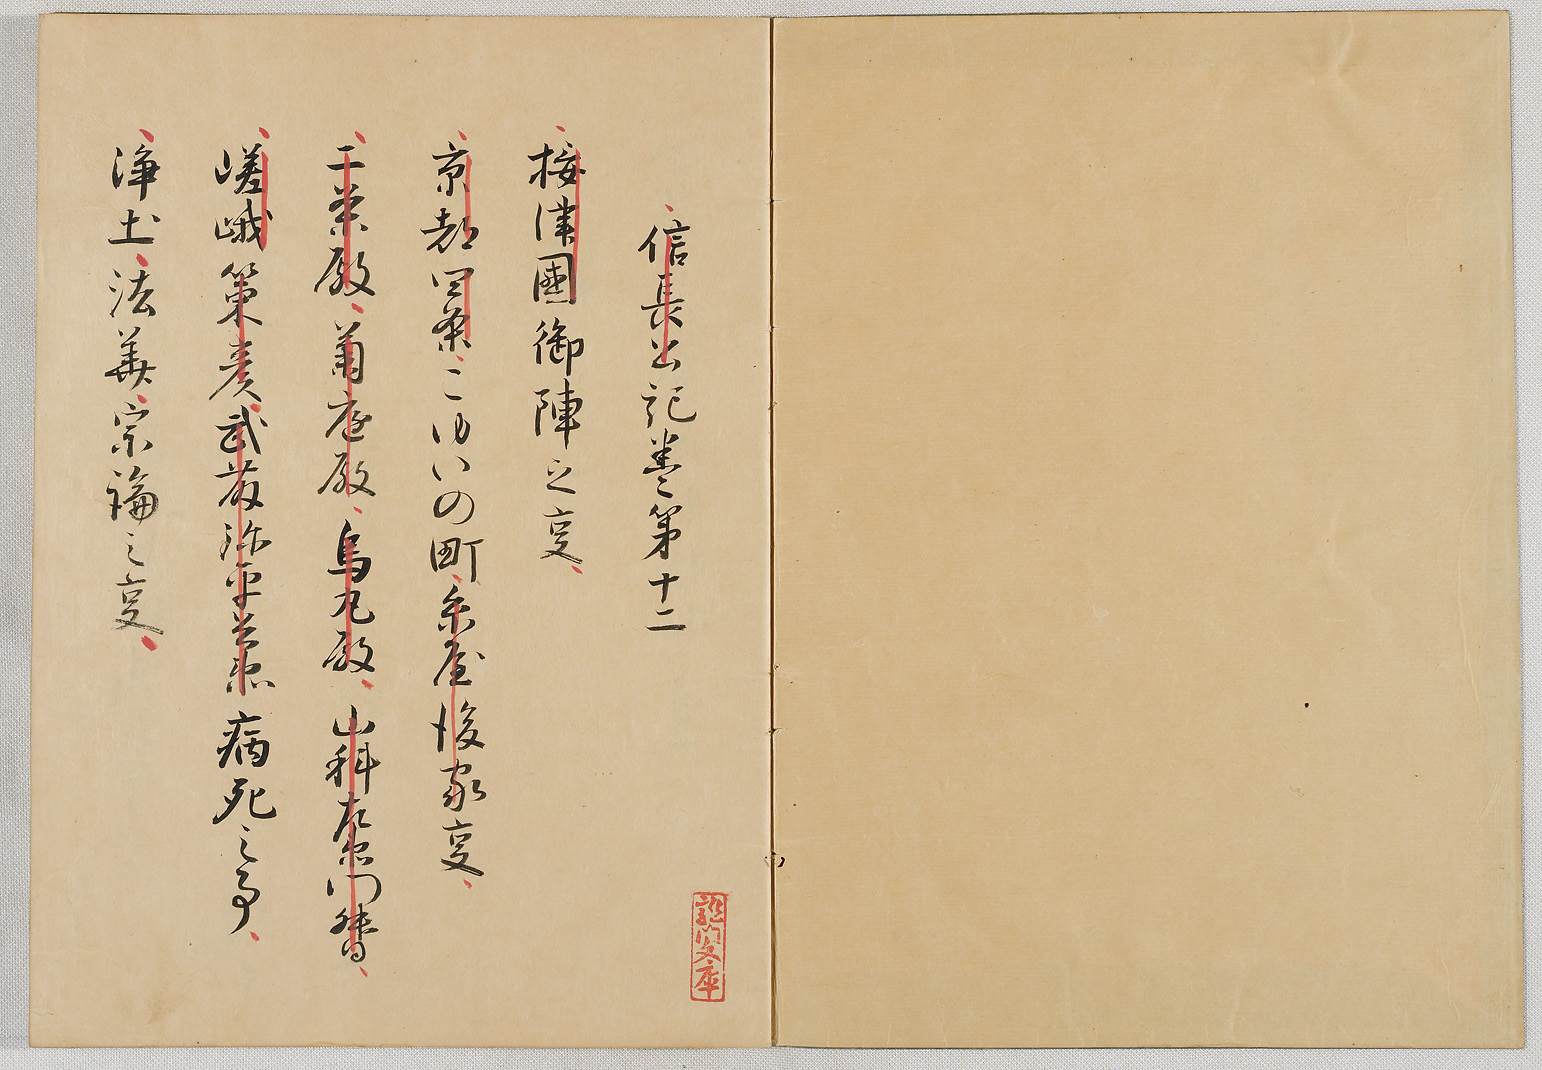 信長公記巻第十二
摂津國御陣之㕝
京都四条こゆいの町糸屋後家㕝
二条殿菊庭殿烏丸殿山科左衛門督
嵯峨策彦武藤弥平兵衛病死之事
浄土法華宗論之㕝
龍門文庫